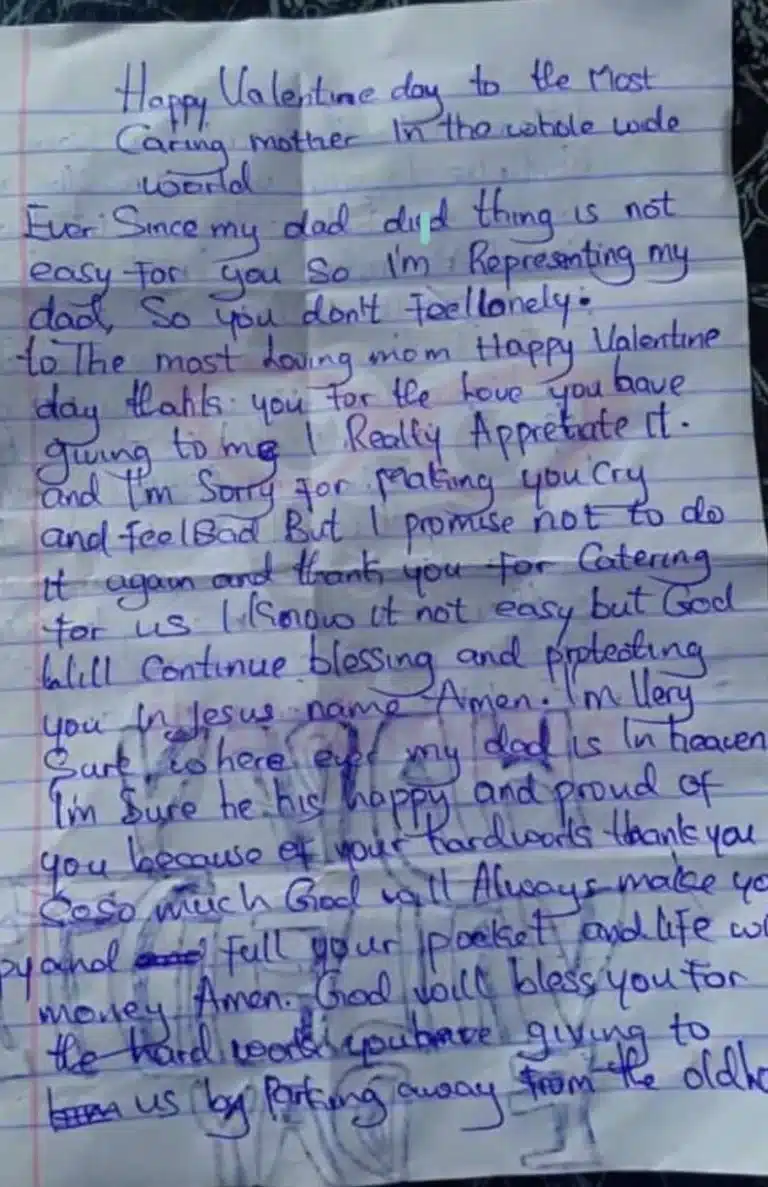 Happy Valentine day to the Most
Caring mother In the whole wide
world
Ever Since my dad died thing is not
easy for you So I'm Representing my
dad, So you don't Feel lonely.
to The most Loving mom Happy Valentine
day thanks you for the Love you have
giving to me I Really Appretiate It.
and I'm Sorry for Making you Cry
and feel Bad But I promise not to do
it again and thank you for Catering
for us I Know it not easy but God
Will Continue blessing and protecting
you In Jesus name Amen. I'm Very
Sure where ever my dad is In heaven
I'm Sure he his happy and proud of
you because of your hardworks thank you
so much God will Always make yo
py and full your pocket and life wi
money Amen. God will bless you For
the hard works you have giving to
us by Parking away from the old ho